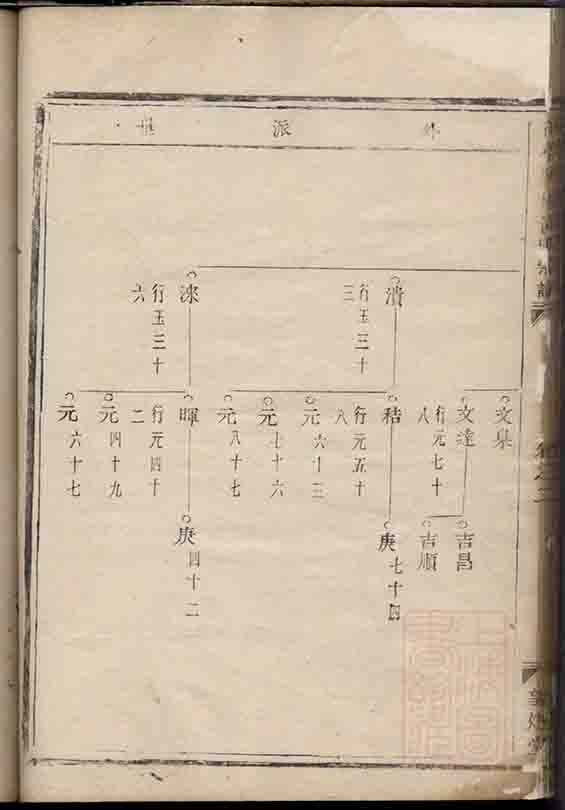 派
世
文集
文達
行元七十
八
吉昌
吉順
濆
行玉三十
三
秸
行元五十
八
庚七十四
元六十三
元七十六
元八十七
淶
行玉三十
六
暉
行元四十
二
庚四十二
元四十九
元六十七
卷之三